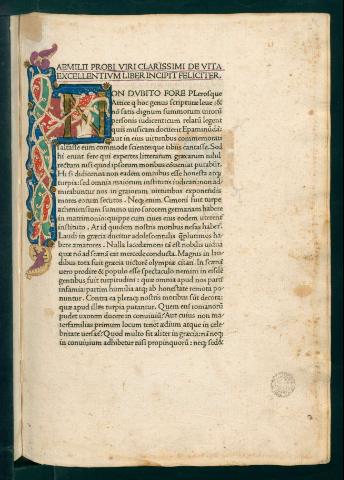 AEMILII PROBI VIRI CLARISSIMI DE VITA
EXCELLENTIVM LIBER INCIPIT FELICITER.
NON DVBITO FORE PLerosque
Attice q hoc genus scripturæ leue: &
nō satis dignum summorum uirorū
personis iudicent: cum relatū legent
quis musicam docuerit Epaminūdā:
aut in eius uirtutibus commemorari
saltasse eum commode: scienterque tibiis cantasse. Sed
hi erunt fere qui expertes litterarum græcarum nihil
rectum nisi quod ipsorum moribus cōueniat putabūt.
Hi si didicerint non eadem omnibus esse honesta atq;
turpia: sed omnia maiorum institutis iudicari: non ad
mirabuntur nos in graiorum uirtutibus exponendis
mores eorum secutos. Neq; enim Cimoni fuit turpe
atheniensium summo uiro sororem germanam habere
in matrimonio: quippe cum ciues eius eodem uterent
instituto. At id quidem nostris moribus nefas habet.
Laudi in græcia ducitur adolescentulis quplurimos ha
bere amatores. Nulla lacedæmoni tā est nobilis uidua
quæ nō ad scænā eat mercede conducta. Magnis in lau
dibus tota fuit græcia uictorē olympiæ citari. In scænā
uero prodire & populo esse spectaculo nemini in eisdē
gentibus fuit turpitudini: quæ omnia apud nos partī
infamia: partim humilia atq; ab honestate remota po
nuntur. Contra ea pleraq; nostris moribus sūt decora:
quæ apud illos turpia putantur. Quem eni romanorū
pudet uxorem ducere in conuiuiū? Aut cuius non ma
terfamilias primum locum tenet ædium atque in cele
britate uersat? Quod multo fit aliter in græcia: nā neq;
in conuiuium adhibetur nisi propinquorū: neq; sedet